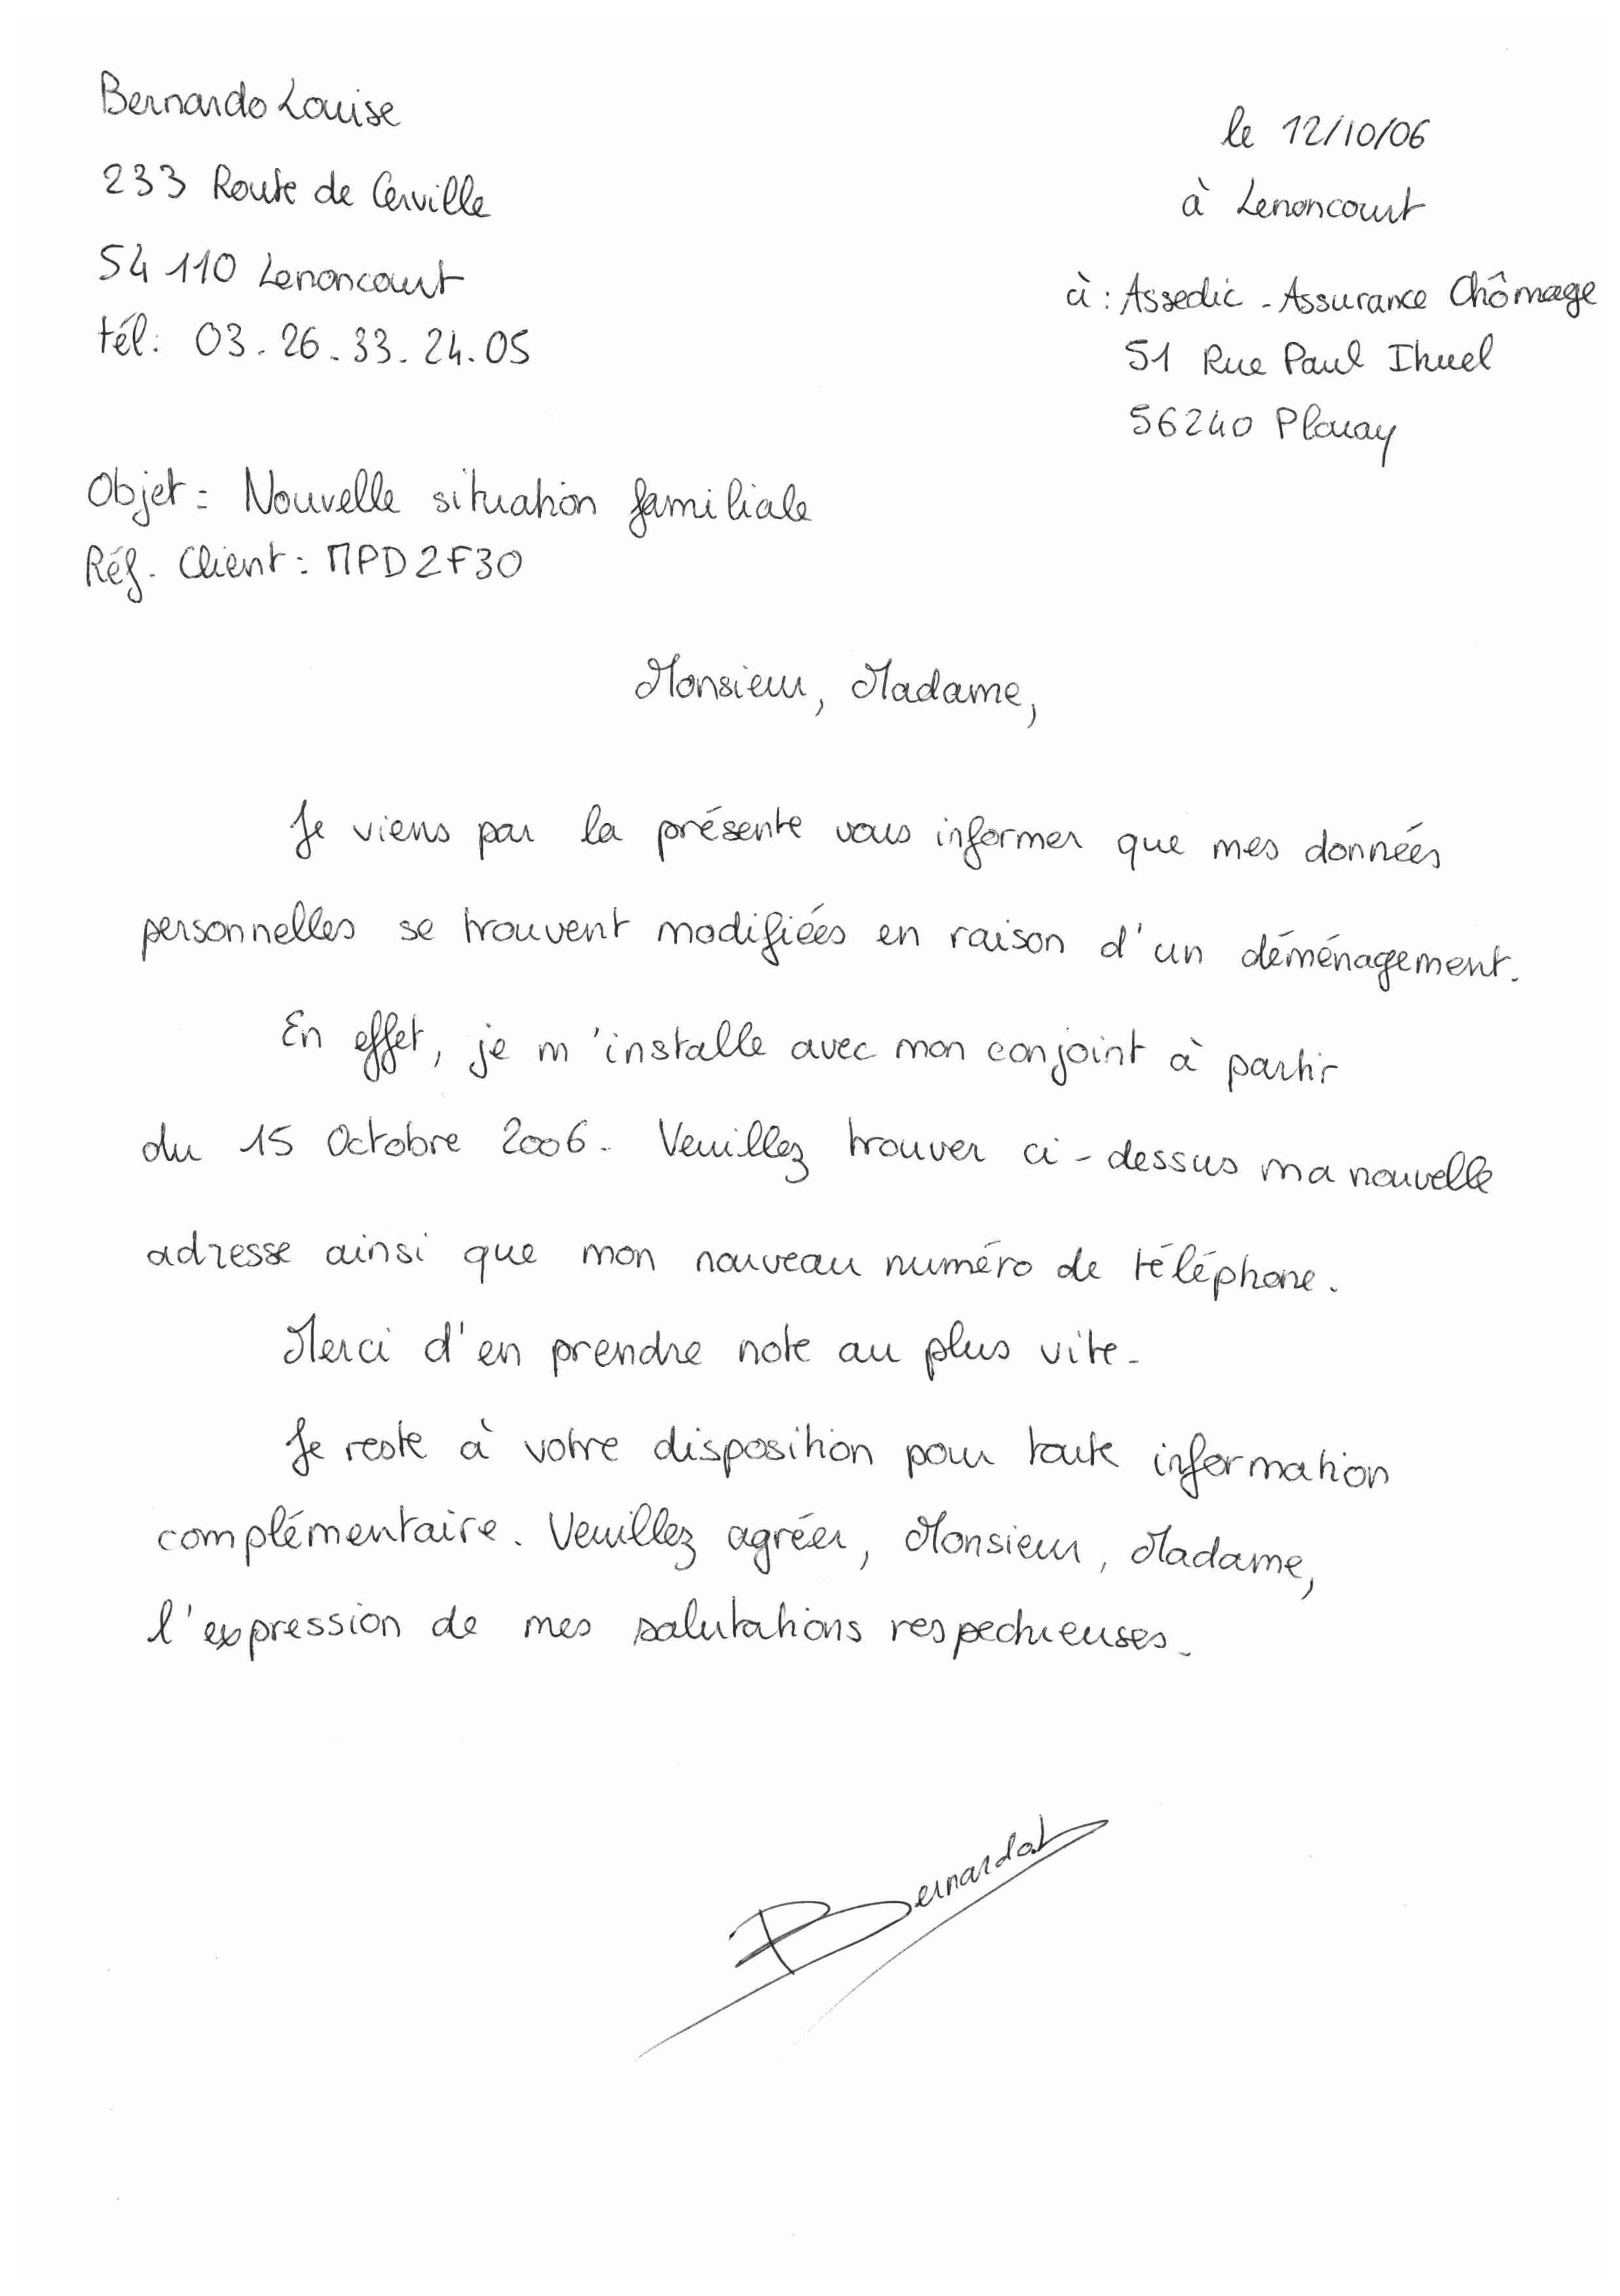 Bernardo Louise
233 Route de Cerville
54 110 Lenoncourt
tél: 03.26.33.24.05
le 12/10/06
à Lenoncourt
à : Assedic - Assurance Chômage
51 Rue Paul Ihuel
56240 Plouay
Objet : Nouvelle situation familiale
Réf. Client : MPD2F30
Monsieur, Madame,
Je viens par la présente vous informer que mes données
personnelles se trouvent modifiées en raison d'un déménagement.
En effet, je m'installe avec mon conjoint à partir
du 15 Octobre 2006. Veuillez trouver ci-dessus ma nouvelle
adresse ainsi que mon nouveau numéro de téléphone.
Merci d'en prendre note au plus vite.
Je reste à votre disposition pour toute information
complémentaire. Veuillez agréer, Monsieur, Madame,
l'expression de mes salutations respectueuses.
BernardoL